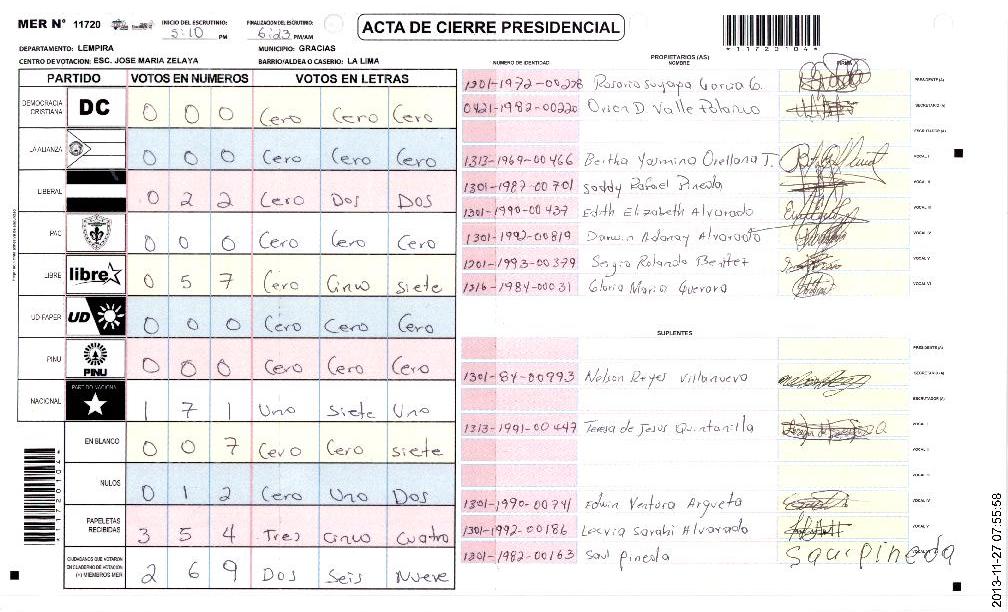 MER N° 11720 INICIO DEL ESCRUTINIO: 5:10 PM FINALIZACION DEL ESCRUTINIO: 6:23 PM/AM ACTA DE CIERRE PRESIDENCIAL
*11720104*
DEPARTAMENTO: LEMPIRA MUNICIPIO: GRACIAS
CENTRO DE VOTACION: ESC. JOSE MARIA ZELAYA BARRIO/ALDEA O CASERIO: LA LIMA
PARTIDO VOTOS EN NUMEROS VOTOS EN LETRAS
DEMOCRACIA CRISTIANA DC 0 0 0 Cero Cero Cero
LA ALIANZA 0 0 0 Cero Cero Cero
LIBERAL 0 2 2 Cero Dos Dos
PAC 0 0 0 Cero Cero Cero
LIBRE libre 0 5 7 Cero Cinco Siete
UD FAPER UD 0 0 0 Cero Cero Cero
PINU PINU 0 0 0 Cero Cero Cero
NACIONAL PARTIDO NACIONAL 1 7 1 Uno Siete Uno
EN BLANCO 0 0 7 Cero Cero siete
NULOS 0 1 2 Cero Uno Dos
PAPELETAS RECIBIDAS 3 5 4 Tres cinco cuatro
CIUDADANOS QUE VOTARON EN CUADERNO DE VOTACION (+) MIEMBROS MER 2 6 9 Dos Seis Nueve
*11720104*
PROPIETARIOS (AS)
NUMERO DE IDENTIDAD NOMBRE FIRMA
1301-1972-00228 Rosario Suyapa Garcia G. PRESIDENTE(A)
0421-1982-00220 Orien D. Valle Polanco SECRETARIO (A)
ESCRUTADOR (A)
1313-1969-00466 Bertha Yasmina Orellana T. VOCAL I
1301-1987-00701 Saddy Rafael Pineda VOCAL II
1301-1990-00437 Edith Elizabeth Alvarado VOCAL III
1301-1992-00819 Darwin Adonay Alvarado VOCAL IV
1201-1993-00379 Sergio Rolando Benitez VOCAL V
1216-1984-00031 Gloria Maria Guevara VOCAL VI
SUPLENTES
PRESIDENTE(A)
1301-84-00993 Nelson Reyes Villanueva SECRETARIO (A)
ESCRUTADOR (A)
1313-1991-00447 Teresa de Jesus Quintanilla VOCAL I
VOCAL II
VOCAL III
1301-1990-00741 Edwin Ventura Argueta VOCAL IV
1301-1992-00186 Lesvia Sarahi Alvarado VOCAL V
1301-1982-00163 Saul pineda saul pineda
2013-11-27 07:55:58